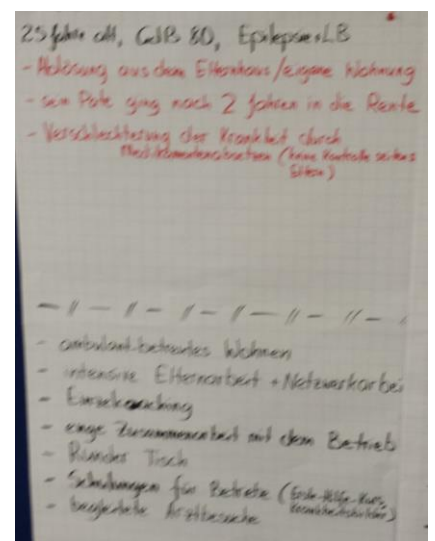 25 Jahre alt, GdB 80, Epilepsie+LB
- Ablösung aus dem Elternhaus/eigene Wohnung
- sein Pate ging nach 2 Jahren in die Rente
- Verschlechterung der Krankheit durch
Medikamentenabsetzen (keine Kontrolle seitens
Eltern)
- ambulant-betreutes Wohnen
- intensive Elternarbeit + Netzwerkarbei
- Einzelcoaching
- enge Zusammenarbeit mit dem Betrieb
- Runder Tisch
- Schulungen für Betriebe (Erste-Hilfe-Kurs,
- begleitete Arztbesuche